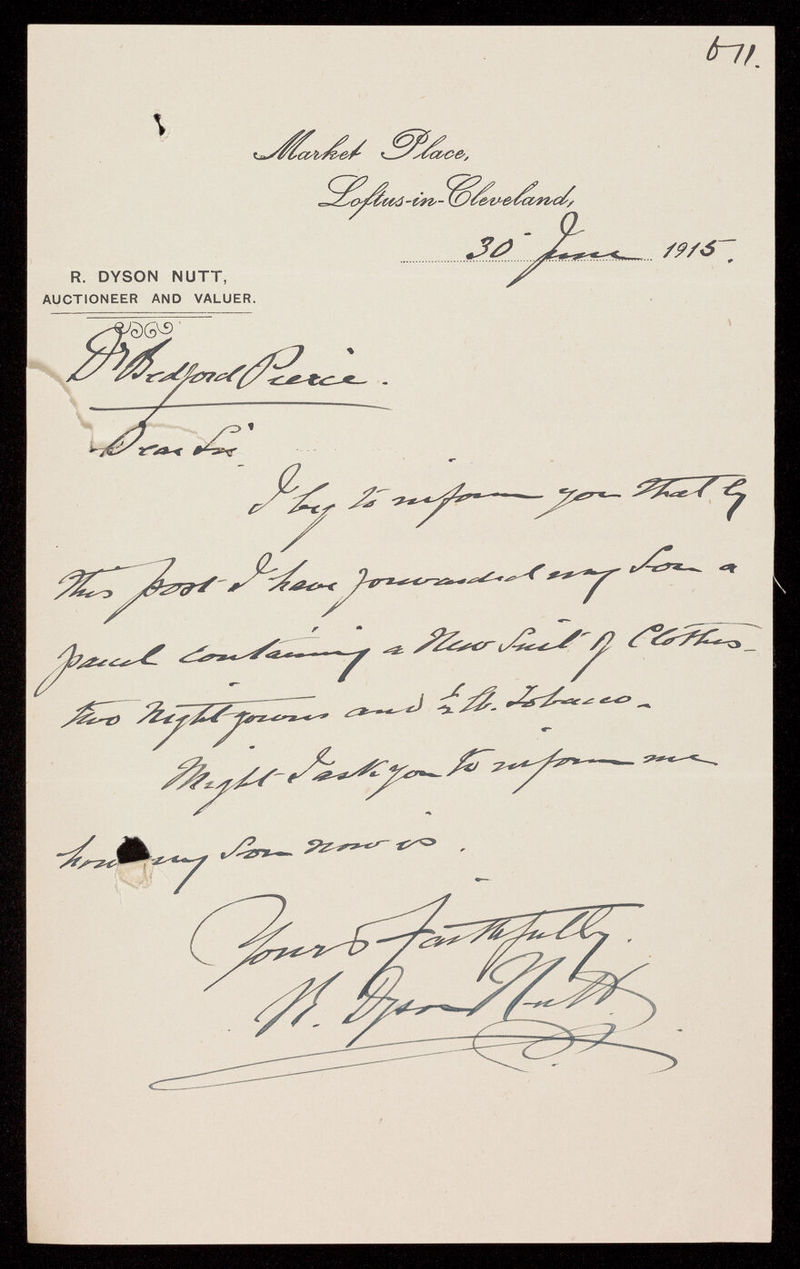 671.
Market Place,
Loftus-in-Cleveland,
30 June 1915.
R. DYSON NUTT,
AUCTIONEER AND VALUER.
Dr Bedford Pierce.
Dear Sir
I beg to inform you that by
this post I have forwarded my Son a
parcel containing a New Suit of Clothes -
two Nightgowns and ½ lb. Tobacco.
Might I ask you to inform me
how my Son now is.
Yours faithfully.
R. Dyson Nutt